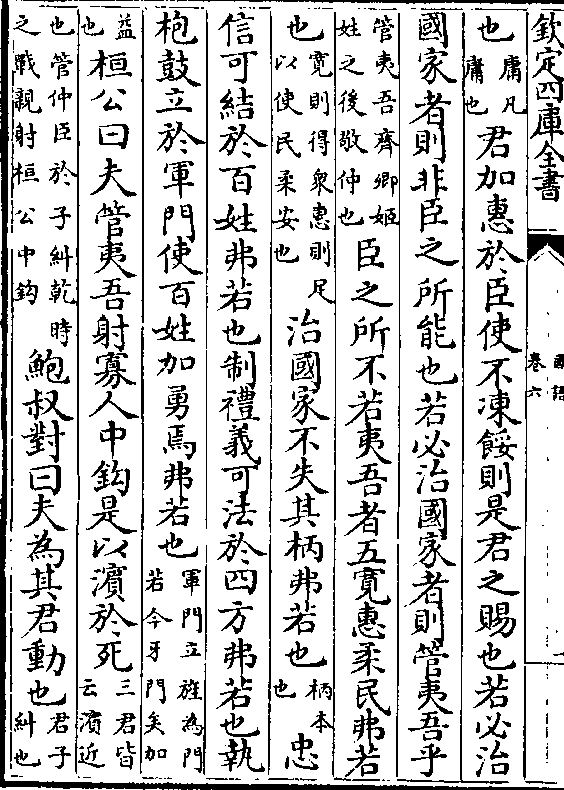 欽定四庫全書
國語
卷六
也庸凡庸也君加惠於臣使不凍餒則是君之賜也若必治
國家者則非臣之所能也若必治國家者則管夷吾乎
管夷吾齊卿姬姓之後敬仲也臣之所不若夷吾者五寬惠柔民弗若
也寬則得衆惠則足以使民柔安也治國家不失其柄弗若也柄本也忠
信可結於百姓弗若也制禮義可法於四方弗若也執
枹鼓立於軍門使百姓加勇焉弗若也軍門立旌為門若今牙門矣加
益也桓公曰夫管夷吾射寡人中鈎是以濱於死三君皆云濱近
也管仲臣於子糾乾時之戰親射桓公中鈎鮑叔對曰夫為其君動也君子糾也